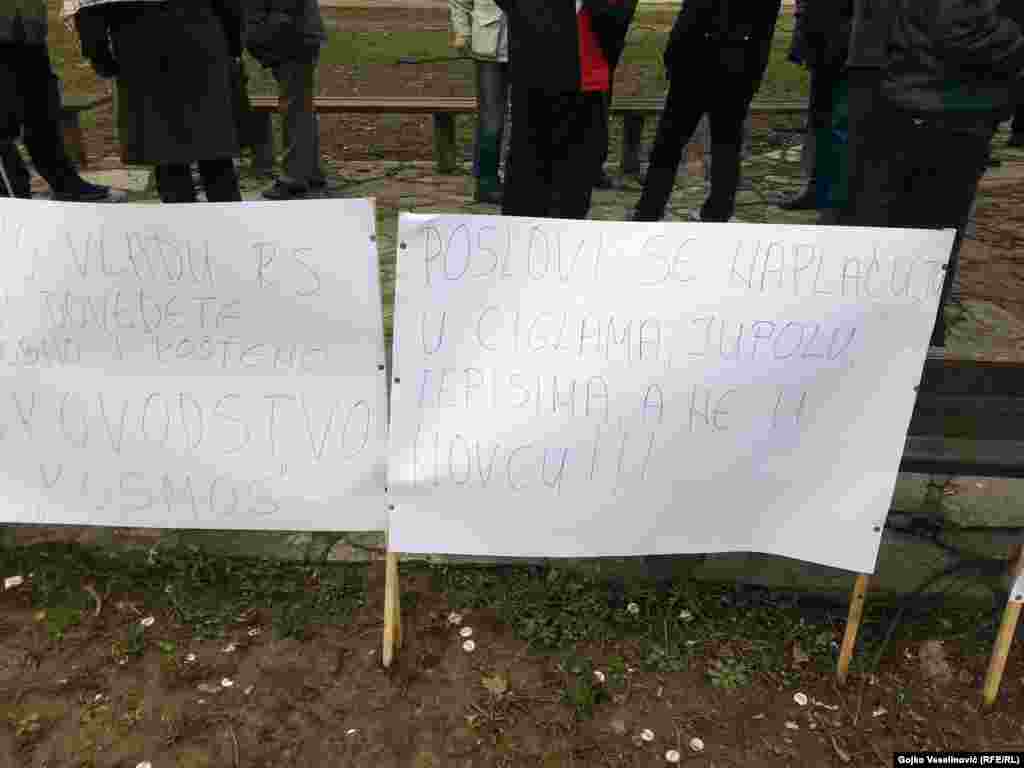 VLADU RS
DOVEDETE
I POŠTENE
KOSMOS
POSLOVI SE NAPLAĆUJU
U CIGLAMA, JUPOLU,
TEPISIMA A NE U
NOVCU!!!
Gojko Veselinović (RFE/RL)